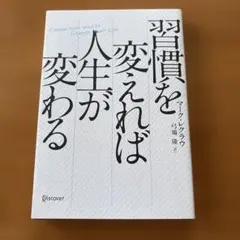 習慣を
変えれば
人生が
変わる
マーク・レクラウ
弓場 隆 訳
Discover